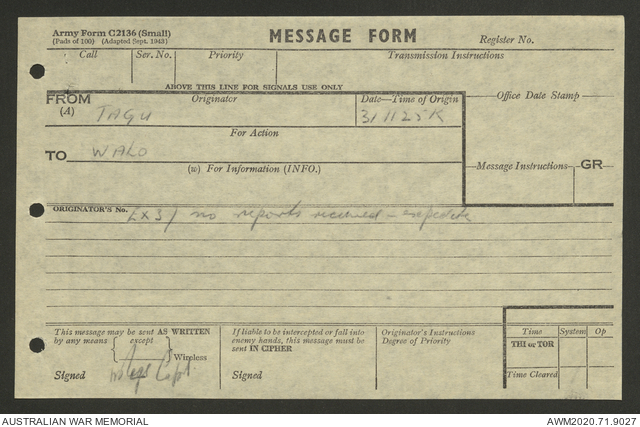 Army Form C2136 (Small)
(Pads of 100) (Adapted Sept. 1943)
MESSAGE FORM
Register No.
Call
Ser. No.
Priority
Transmission Instructions
ABOVE THIS LINE FOR SIGNALS USE ONLY
FROM
(A)
Originator
Date—Time of Origin
Office Date Stamp
TAGU
311125K
For Action
TO
WALO
(w) For Information (INFO.)
Message Instructions
GR
ORIGINATOR'S No.
EX3/ no reports received – expedite
This message may be sent AS WRITTEN
by any means except
Wireless
Signed
Capt
If liable to be intercepted or fall into
enemy hands, this message must be
sent IN CIPHER
Signed
Originator's Instructions
Degree of Priority
Time
System
Op
THI or TOR
Time Cleared
AUSTRALIAN WAR MEMORIAL
AWM2020.71.9027